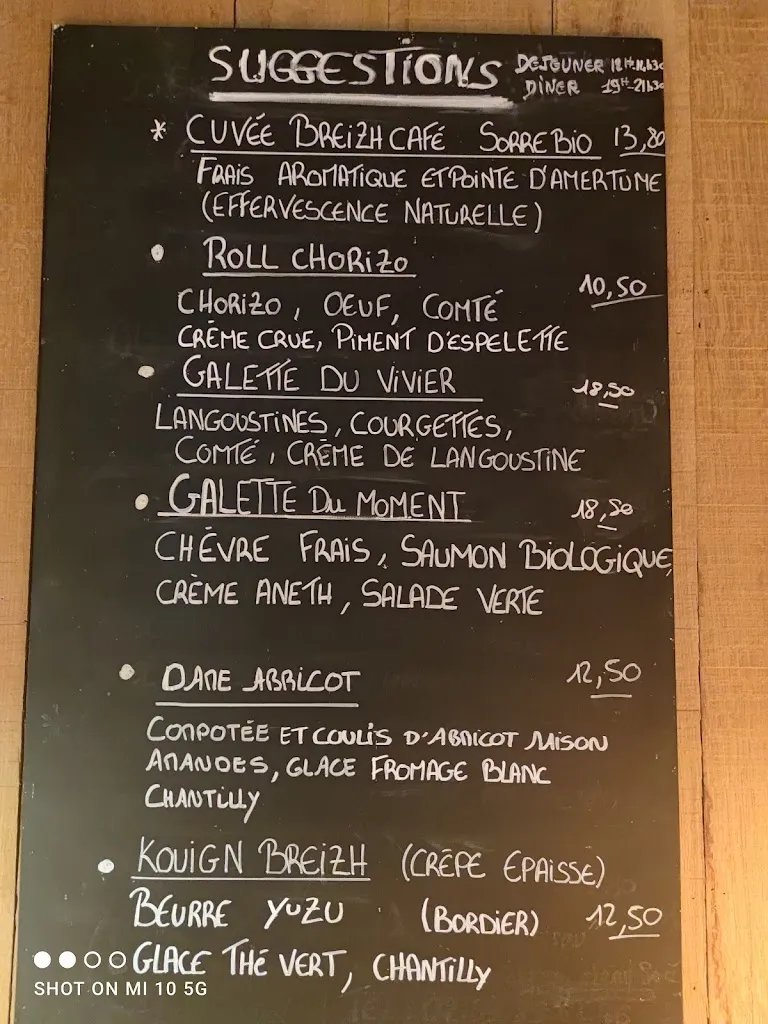 SUGGESTIONS
DEJEUNER 12H-14h30
DÎNER 19H-21h30
* CUVÉE BREIZH CAFÉ SORRE BIO 13,80
FRAIS AROMATIQUE ET POINTE D'AMERTUME
(EFFERVESCENCE NATURELLE)
• ROLL CHORIZO
10,50
CHORIZO, OEUF, COMTÉ
CRÈME CRUE, PIMENT D'ESPELETTE
• GALETTE DU VIVIER 18,50
LANGOUSTINES, COURGETTES,
COMTÉ, CRÈME DE LANGOUSTINE
• GALETTE DU MOMENT 18,50
CHÉVRE FRAIS, SAUMON BIOLOGIQUE,
CRÈME ANETH, SALADE VERTE
• DAME ABRICOT 12,50
COMPOTÉE ET COULIS D'ABRICOT MAISON
AMANDES, GLACE FROMAGE BLANC
CHANTILLY
• KOUIGN BREIZH (CRÊPE EPAISSE)
BEURRE YUZU (BORDIER) 12,50
GLACE THÉ VERT, CHANTILLY
SHOT ON MI 10 5G